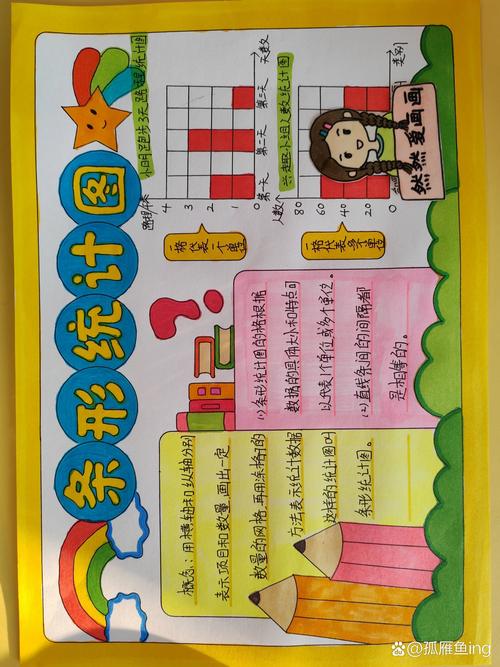 条形统计图
小明跑步3天路程统计图
4
3
2
1
0
第一天
第二天
第三天
天数
一格代表一个单位
兴趣小组人数统计图
人数/个
80
60
40
20
0
类别
一格代表多个单位
然然爱画画
概念：用横轴和纵轴分别
表示项目和数量，画出一定
数量的网格，再用涂格子的
方法表示统计数据
这样的统计图叫
条形统计图。
(1)条形统计图的格根据
数据的具体大小和特点可
以代表1个单位或多个单位。
(2)直线条间的间隔都
是相等的。
@孤雁鱼ing